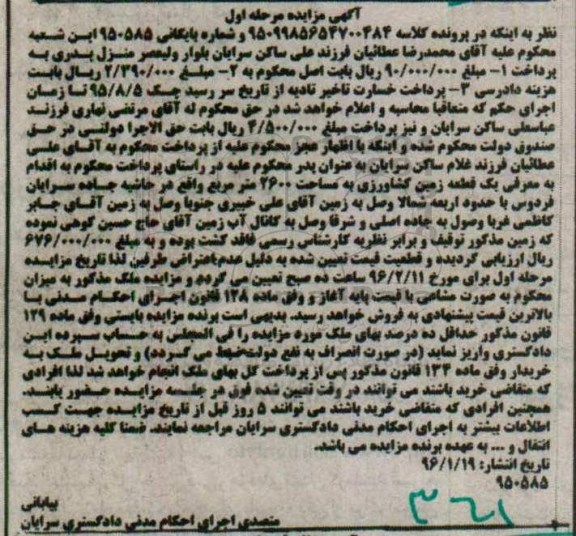 آگهی مزایده مرحله اول
نظر به اینکه در پرونده کلاسه ۹۵۰۹۹۸۵۶۵۴۷۰۰۴۸۴ و شماره بایگانی ۹۵۰۵۸۵ این شعبه
محکوم علیه آقای محمدرضا عطائیان فرزند علی ساکن سرایان بلوار ولیعصر منزل پدری به
پرداخت ۱- مبلغ ۹۰/۰۰۰/۰۰۰ ریال بابت اصل محکوم به ۲- مبلغ ۲/۳۹۰/۰۰۰ ریال بابت
هزینه دادرسی ۳- پرداخت خسارت تاخیر تادیه از تاریخ سر رسید چک ۹۵/۸/۵ تا زمان
اجرای حکم که متعاقبا محاسبه و اعلام خواهد شد در حق محکوم له آقای مرتضی نماری فرزند
عباسعلی ساکن سرایان و نیز پرداخت مبلغ ۴/۵۰۰/۰۰۰ ریال بابت حق الاجرا دولتی در حق
صندوق دولت محکوم شده و اینکه با اظهار عجز محکوم علیه از پرداخت محکوم به آقای علی
عطائیان فرزند غلام ساکن سرایان به عنوان پدر محکوم علیه در راستای پرداخت محکوم به اقدام
به معرفی یک قطعه زمین کشاورزی به مساحت ۲۶۰۰ متر مربع واقع در حاشیه جاده سرایان
فردوس با حدود اربعه شمالا وصل به زمین آقای علی خبیری جنوبا وصل به زمین آقای جابر
کاظمی غربا وصول به جاده اصلی و شرقا وصل به کانال آب زمین آقای حاج حسین کوهی نموده
که زمین مذکور توقیف و برابر نظریه کارشناس رسمی فاقد کشت بوده و به مبلغ ۶۷۶/۰۰۰/۰۰۰
ریال ارزیابی گردیده و قطعیت قیمت تعیین شده به دلیل عدم اعتراض طرفین لذا تاریخ مزایده
مرحله اول برای مورخ ۹۶/۲/۱۱ ساعت ده صبح تعیین می گردد و مزایده ملک مذکور به میزان
محکوم به صورت مشاعی با قیمت پایه آغاز و وفق ماده ۱۲۸ قانون اجرای احکام مدنی با
بالاترین قیمت پیشنهادی به فروش خواهد رسید. بدیهی است برنده مزایده بایستی وفق ماده ۱۲۹
قانون مذکور حداقل ده درصد بهای ملک مورد مزایده را فی المجلس به حساب سپرده این
دادگستری واریز نماید (در صورت انصراف به نفع دولت ضبط می گردد) و تحویل ملک به
خریدار وفق ماده ۱۳۴ قانون مذکور پس از پرداخت کل بهای ملک انجام خواهد شد لذا افرادی
که متقاضی خرید باشند می توانند در وقت تعیین شده فوق در جلسه مزایده حضور یابند.
همچنین افرادی که متقاضی خرید باشند می توانند ۵ روز قبل از تاریخ مزایده جهت کسب
اطلاعات بیشتر به اجرای احکام مدنی دادگستری سرایان مراجعه نمایند. ضمنا کلیه هزینه های
انتقال و ... به عهده برنده مزایده می باشد.
تاریخ انتشار: ۹۶/۱/۱۹
۹۵۰۵۸۵
بیابانی
متصدی اجرای احکام مدنی دادگستری سرایان